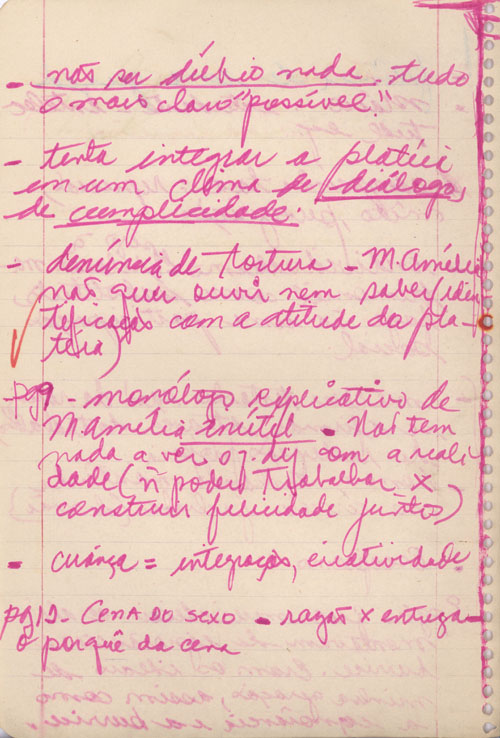 - não ser dúbio nada. tudo
o mais claro "possível".
- tenta integrar a platéia
em um clima de diálogo,
de cumplicidade.
- denúncia de tortura - M. Amélia
não quer ouvir nem saber (iden
tificação com a atitude da pla-
téia)
-pg9 - monólogo explicativo de
M amélia inútil - Não tem
nada a ver o q. diz com a reali
dade (ñ poder trabalhar x
construir felicidade juntos)
- criança = integração, criatividade
pg12- CENA DO SEXO - razão x entrega-
o porquê da cena